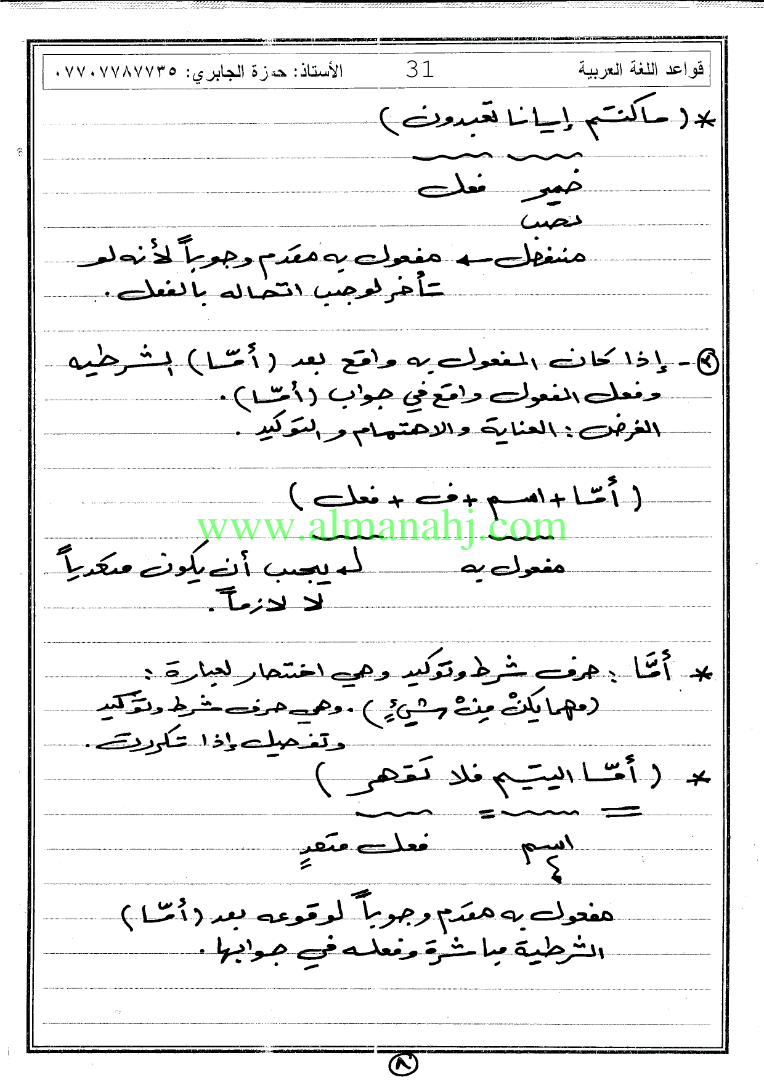 قواعد اللغة العربية 31 الأستاذ: حمزة الجابري: ٠٧٧٠٧٧٨٧٧٣٥
* ( ما كنتم إيانا تعبدون )
ضمير فعل
نصب
منفصل ← مفعول به مقدم وجوباً لأنه لو
تأخر لوجب اتصاله بالفعل.
٢- إذا كان المفعول به واقع بعد (أمّا) الشرطيه
وفعل المفعول واقع في جواب (أمّا).
الغرض: العناية والاهتمام والتوكيد.
( أمّا + اسم + ف + فعل )
www.almanahj.com
مفعول به يجب أن يكون متعدياً
لا لازماً.
* أمَّا : حرف شرط وتوكيد وهي اختصار لعبارة :
(مهما يكنْ مِنْ شيءٍ). وهي حرف شرط وتوكيد
وتفصيل إذا تكررت.
* ( أمّا اليتيم فلا تقهر )
اسم فعل متعدٍ
مفعول به مقدم وجوباً لوقوعه بعد (أمّا)
الشرطية مباشرة وفعله في جوابها.
٨